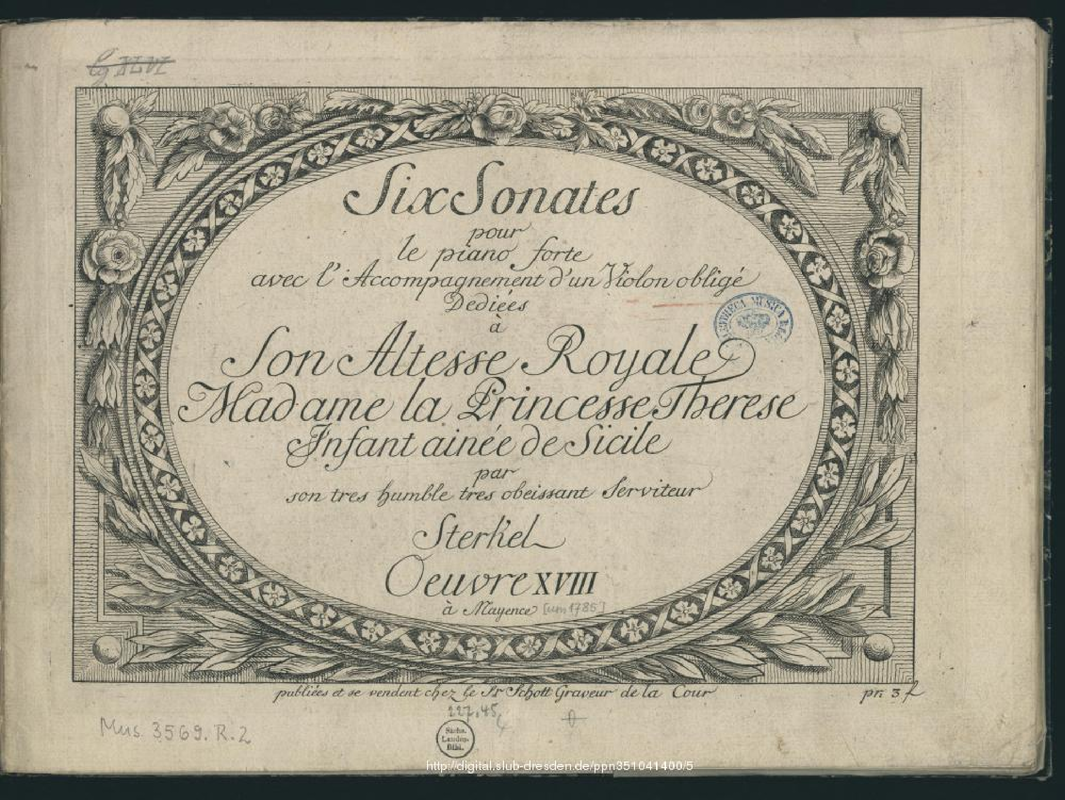 Six Sonates
pour
le piano forte
avec l'Accompagnement d'un Violon obligé
Dediées
à
Son Altesse Royale
Madame la Princesse Therese
Infant ainée de Sicile
par
son tres humble tres obeissant Serviteur
Sterkel
Oeuvre XVIII
à Mayence [um 1785]
publiées et se vendent chez le Sr Schott Graveur de la Cour
pr: 3 f
Mus. 3569. R. 2
Sächs.
Landes-
Bibl.
http://digital.slub-dresden.de/ppn351041400/5